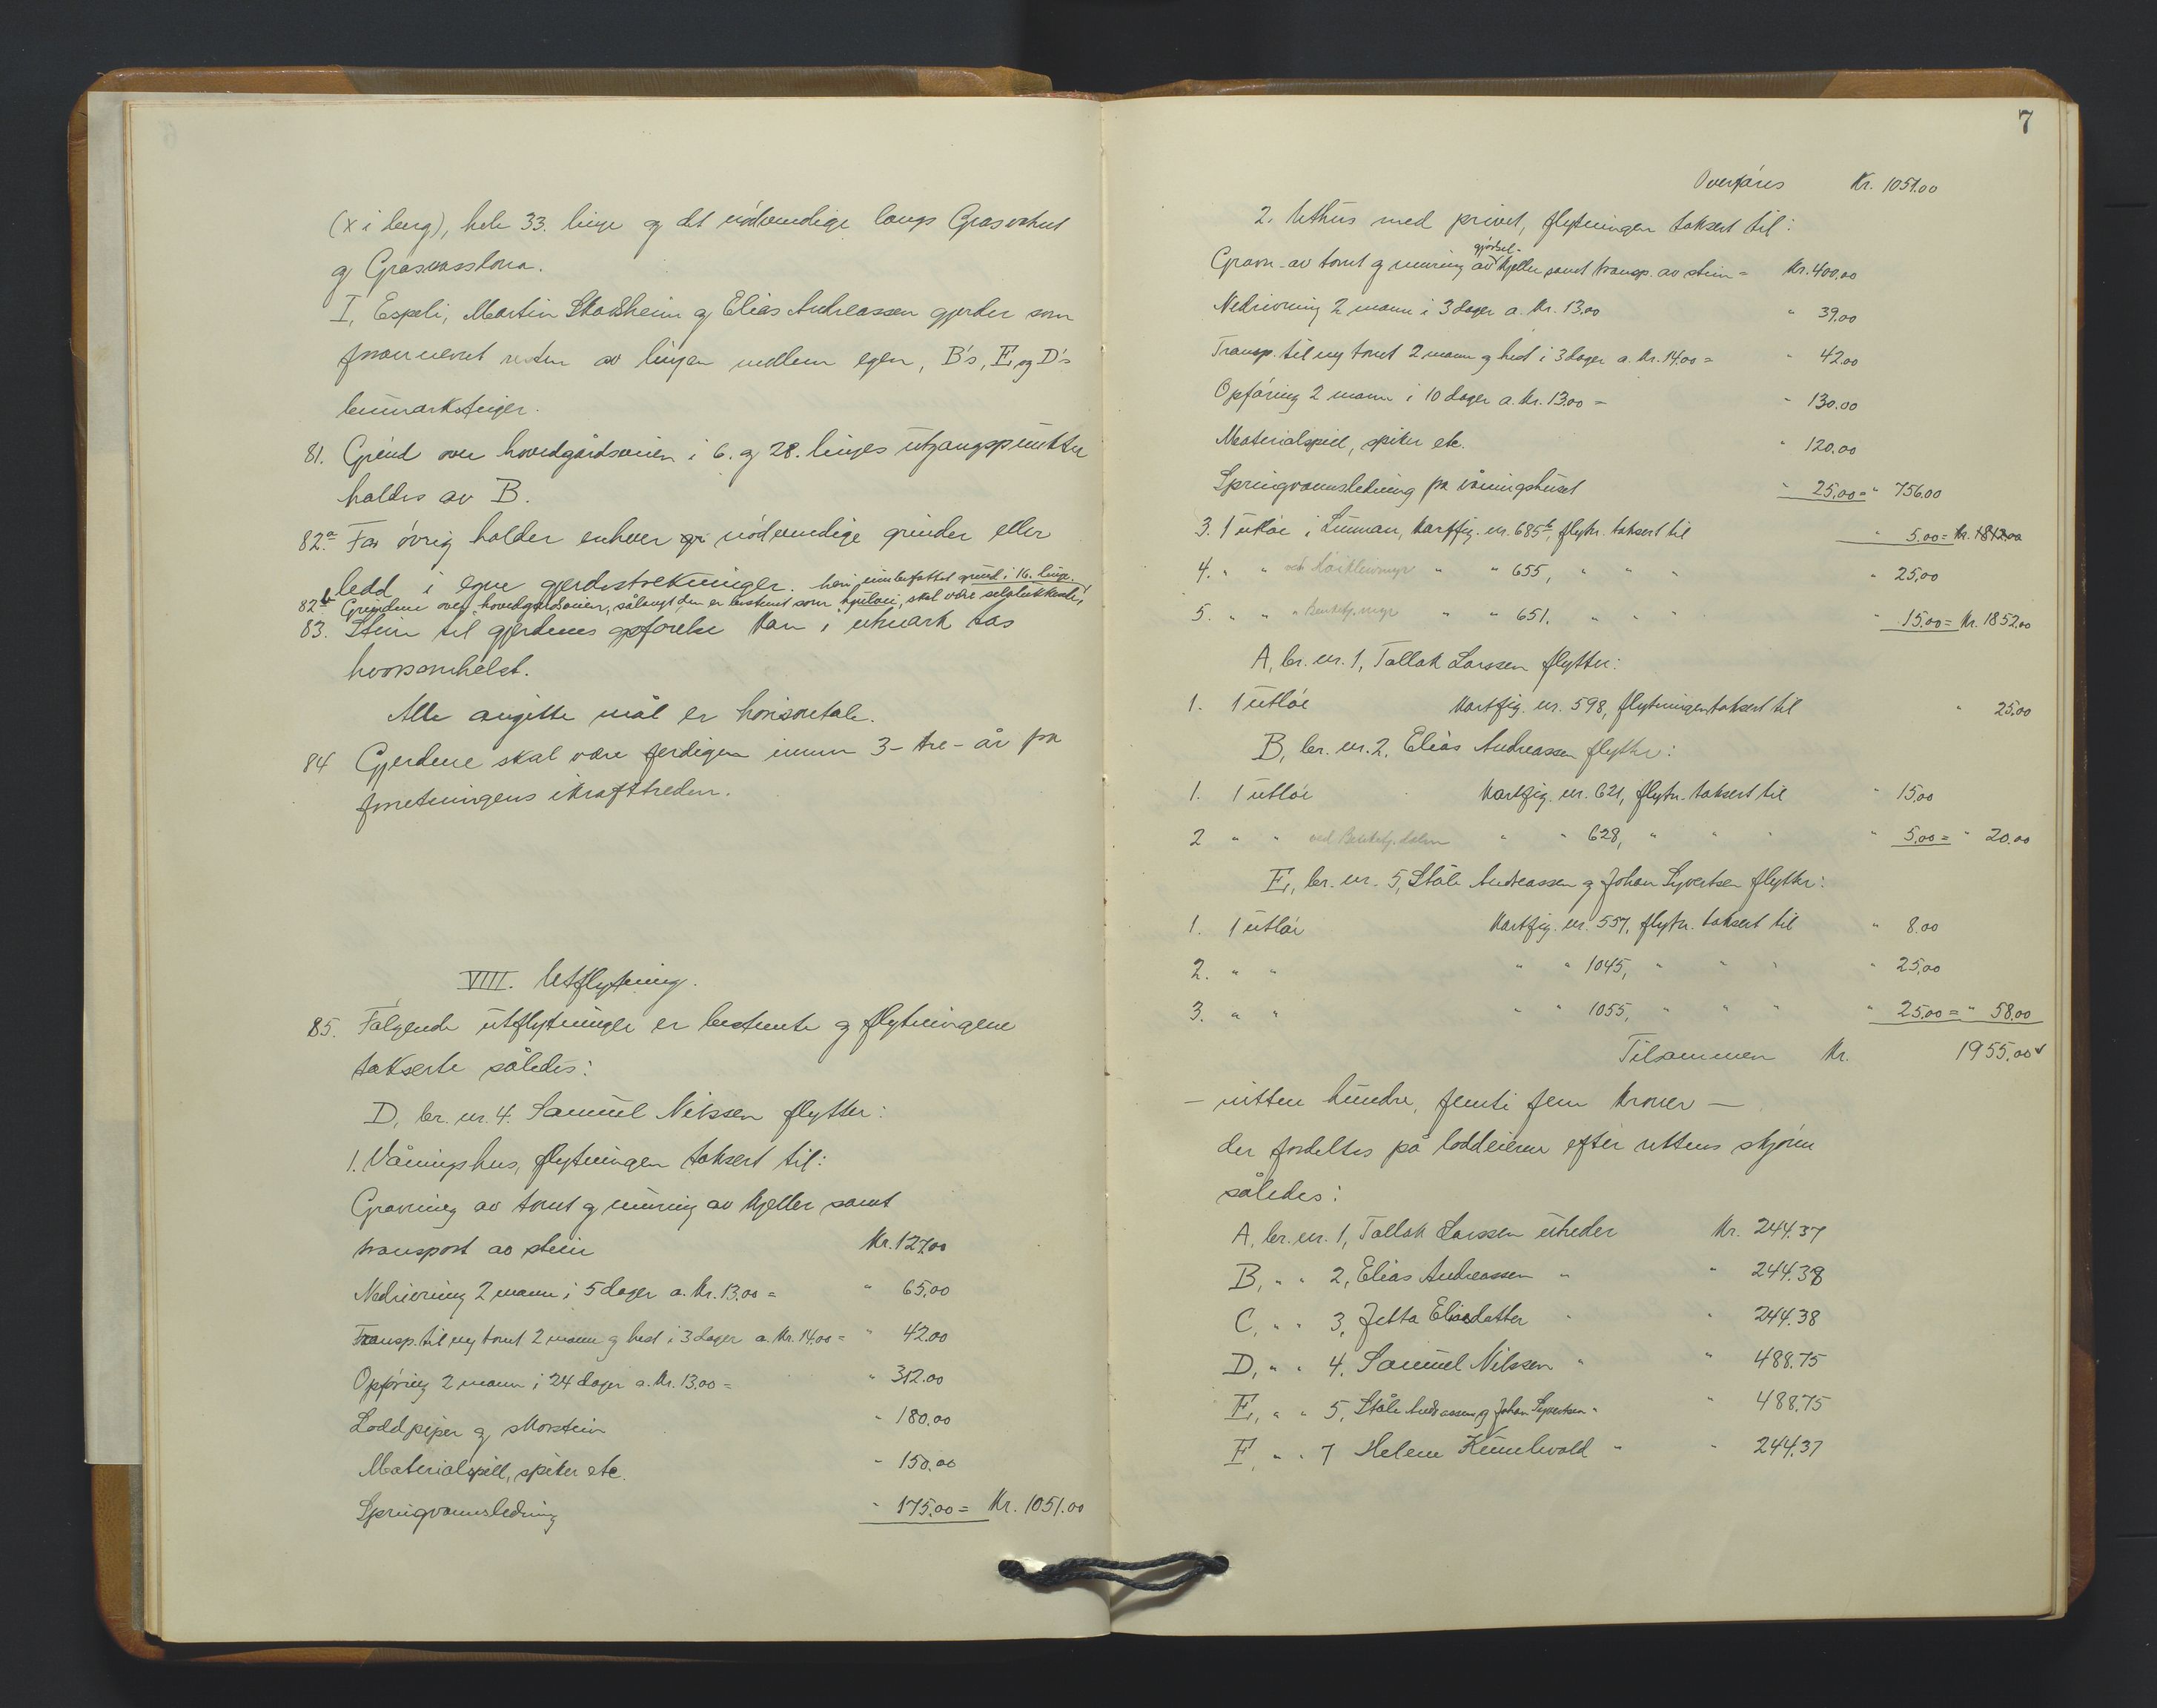 (x i berg), hele 33. linje og det nödvendige langs Grasvatnet
og Grasvasslona.
I, Espeli, Martin Skaisheim og Elias Andreassen gjerder som
foran nevnt resten av linjen mellem egen, B's, E og D's
heimarksteiger.
81. Grind over hovedgårdsveien i 6. og 28. linjes utgangspunkter
holdes av B.
82.a For övrig holder enhver nödvendige grinder eller
ledd i egne gjerdestrekninger. heri innbefattet grind i 16. linje.
82.b Grindene over hovedgårdsveien, sålangt den er bestemt som kjulvei, skal være selvlukkende,
83. Stein til gjerdenes opförelse kan i utmark tas
hvorsomhelst.
Alle angitte mål er horisontale.
84 Gjerdene skal være ferdige innen 3 - tre - år fra
forretningens ikrafttreden.
VIII. Utflytning.
85. Fölgende utflytninger er bestemte og flytningene
takserte således:
D, br. nr. 4. Samuel Nilssen flytter:
1. Våningshus, flytningen taksert til:
Gravning av tomt og muring av kjeller samt
transport av stein Kr. 127.00
Nedrivning 2 mann i 5 dager a. Kr. 13.00 = " 65,00
Transp. til ny tomt 2 mann og hest i 3 dager a. Kr. 14.00 = " 42.00
Opföring 2 mann i 24 dager a. Kr. 13.00 = " 312.00
Loddpiper og skorstein " 180.00
Materialspill, spiker etc. " 150.00
Springvannsledning " 175,00 = Kr. 1051.00
7
Overföres Kr. 1051.00
2. Uthus med privet, flytningen taksert til:
gjödsel-
Gravn. av tomt og muring av kjeller samt transp. av stein = Kr. 400,00
Nedrivning 2 mann i 3 dager a. Kr. 13.00 " 39.00
Transp. til ny tomt 2 mann og hest i 3 dager a. Kr. 14.00 = " 42.00
Opföring 2 mann i 10 dager a. Kr. 13.00 = " 130.00
Materialspill, spiker etc. " 120.00
Springvannsledning fra våningshuset " 25,00 = " 756.00
3. 1 utlöe i Linman, kartfig. nr. 685b, flytn. taksert til " 5.00 = Kr. 1812.00
4. " " ved " " 655, " " " " 25,00
5. " " " Benketj.myr " " 651. " " " " 15.00 = Kr. 1852.00
A, br. nr. 1, Tallak Larssen flytter:
1. 1 utlöe Kartfig. nr. 598, flytningen taksert til " 25,00
B, br. nr. 2. Elias Andreassen flytter:
1. 1 utlöe Kartfig. nr. 621, flytn. taksert til " 15,00
2 " " ved Benketj.dalen " " 628, " " " " 5,00 = " 20.00
E, br. nr. 5, Ståle Andreassen og Johan Syvertsen flytter:
1. 1 utlöe Kartfig. nr. 557, flytn. taksert til " 8.00
2. " " " " 1045, " " " " 25,00
3. " " " " 1055, " " " " 25,00 = " 58.00
Tilsammen Kr. 1955.00
- nitten hundre, femti fem kroner -
der fordeltes på loddeierne efter rettens skjönn
således:
A, br. nr. 1, Tallak Larssen utreder Kr. 244.37
B, " " 2, Elias Andreassen " " 244.38
C, " " 3, Jetta Eliasdatter " " 244.38
D, " " 4. Samuel Nilssen " " 488.75
E, " " 5, Ståle Andreassen og Johan Syvertsen " " 488.75
F, " " 7 Helene Kummelvold " " 244.37